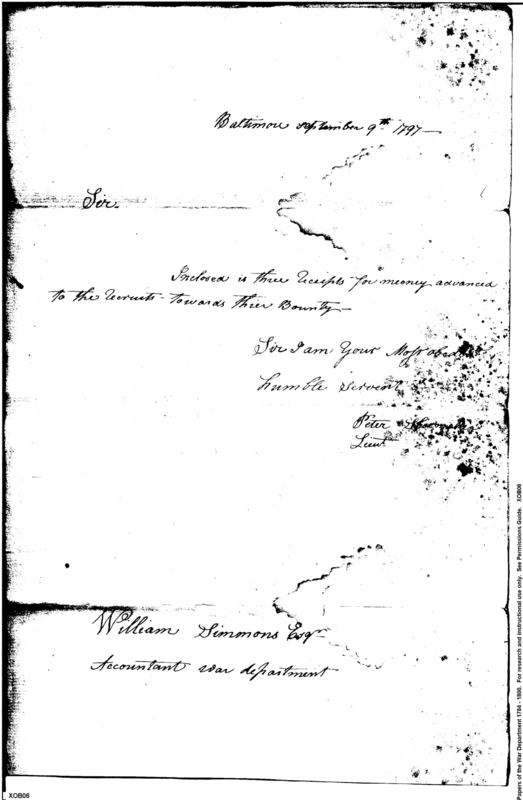 Baltimore September 9th 1797
Sir
Inclosed is three Receipts for meoney advanced
to the Recruits towards thier Bounty
Sir I am Your Most
humble Servent
Peter
Lieut
William Simmons Esqr
Accountant war department
XOB06
Papers of the War Department 1784 - 1800. For research and instructional use only. See Permissions Guide. XOB06